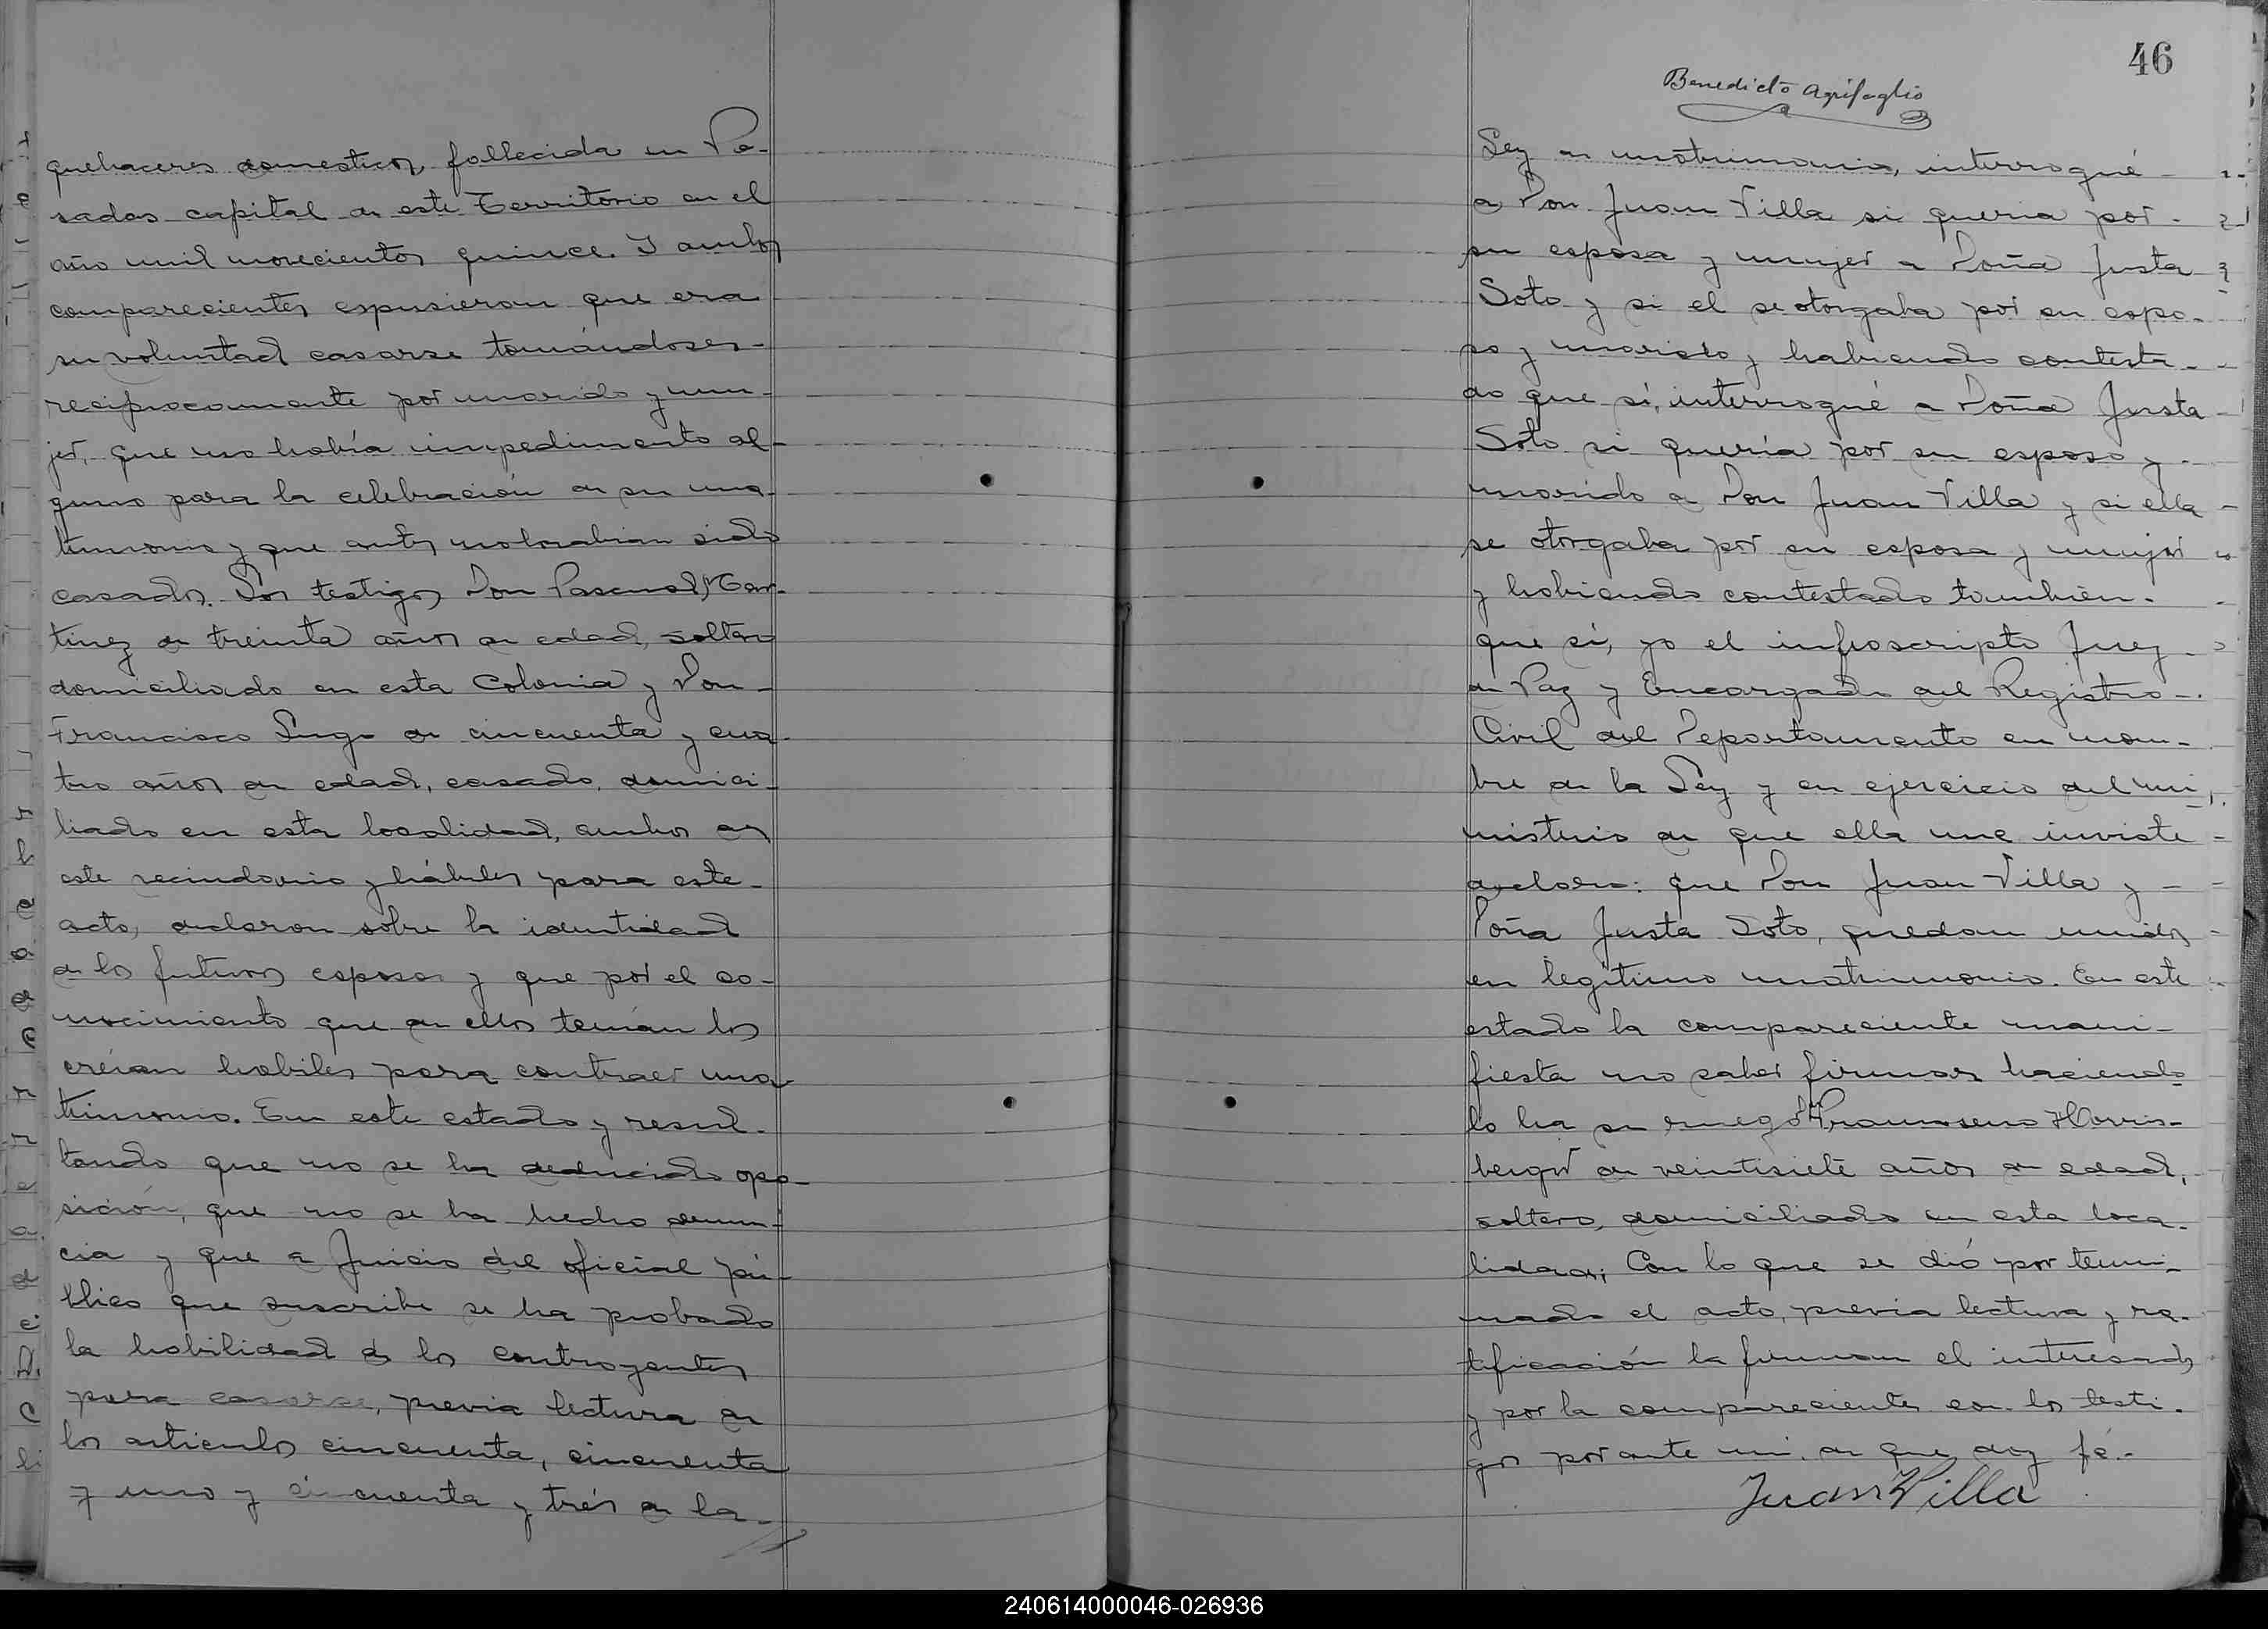 quehaceres domesticos, fallecida en Po-
sadas capital de este Territorio en el
año mil novecientos quince. I ambos
comparecientes espusieron que era
su voluntad casarse tomándoses-
reciprocamente por marido y mu-
jer, que no había impedimento al-
guno para la celebración de su ma-
trimonio y que antes no habian sido
casados. Los testigos Don Pascual Mar-
tinez de treinta años de edad, soltero
domiciliado en esta Colonia y Don-
Francisco Lugo de cincuenta y cua-
tro años de edad, casado, domici-
liado en esta localidad, ambos de
este vecindario y hábiles para este-
acto, declaron sobre la identidad
de los futuros esposos y que por el co-
nocimiento que de ellos tenían los
créian habiles para contraer ma-
trimonio. En este estado y resul-
tando que no se ha deducido opo-
sición, que no se ha hecho denun-
cia y que a Juicio del oficial pú-
blico que suscribe se ha probado
la habilidad de los contrayentes
para casarse, previa lectura de
los articulos cincuenta, cincuenta
y uno y cincuenta y trés de la-
46
Benedicto Agrifoglio
Ley de matrimonio, interrogué-
a Don Juan Villa si queria por-
su esposa y mujer a Doña Justa
Soto y si el se otorgaba por su espo-
so y marido y habiendo contesta-
do que si, interrogué a Doña Justa
Soto si quería por su esposo y
marido a Don Juan Villa y si ella
se otorgaba por su esposa y mujer
y habiendo contestado tambien.
que sí, yo el infrascripto Juez
de Paz y Encargado del Registro-
Civil del Departamento en nom-
bre de la Ley y en ejercicio del mi-
nisterio de que ella me inviste
declaro: que Don Juan Villa y-
Doña Justa Soto, quedan unidos
en legítimo matrimonio. En este
estado la compareciente mani-
fiesta no saber firmar haciendo
lo ha su ruego
de veintisiete años de edad,
soltero, domiciliado en esta loca-
lidad; Con lo que se dió por termi-
nado el acto, previa lectura y ra-
tificación la firman el interesado
y por la compareciente con los testi-
gos por ante mi, de que doy fé.-
Juan Villa
240614000046-026936